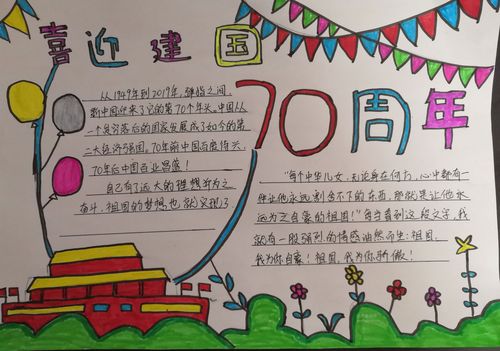 喜迎建国
70周年
从1949年到2019年,转眼之间,
新中国迎来了它的第70个年头。中国从
一个贫穷落后的国家发展成了如今的第
二大经济强国。70年前中国百废待兴,
70年后中国百业昌盛!
自己有了远大的理想并为之
奋斗,祖国的梦想也就实现了
"每个中华儿女,无论身在何方,心中都有一
样让他永远割舍不下的东西,那就是让他永
远为之自豪的祖国!"每当看到这段文字,我
就有一股强烈的情感油然而生:祖国,
我为你自豪!祖国,我为你骄傲!